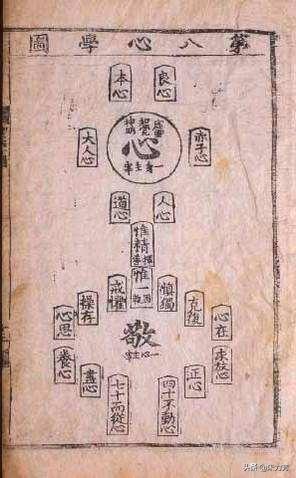 第八心學圖
良心
本心
虛靈
知覺
神明
心
一身主宰
赤子心
大人心
人心
道心
惟精
擇善
惟一
固執
慎獨
戒懼
克復
操存
心在
心思
求放心
養心
正心
盡心
敬
一心主宰
四十不動心
七十而從心